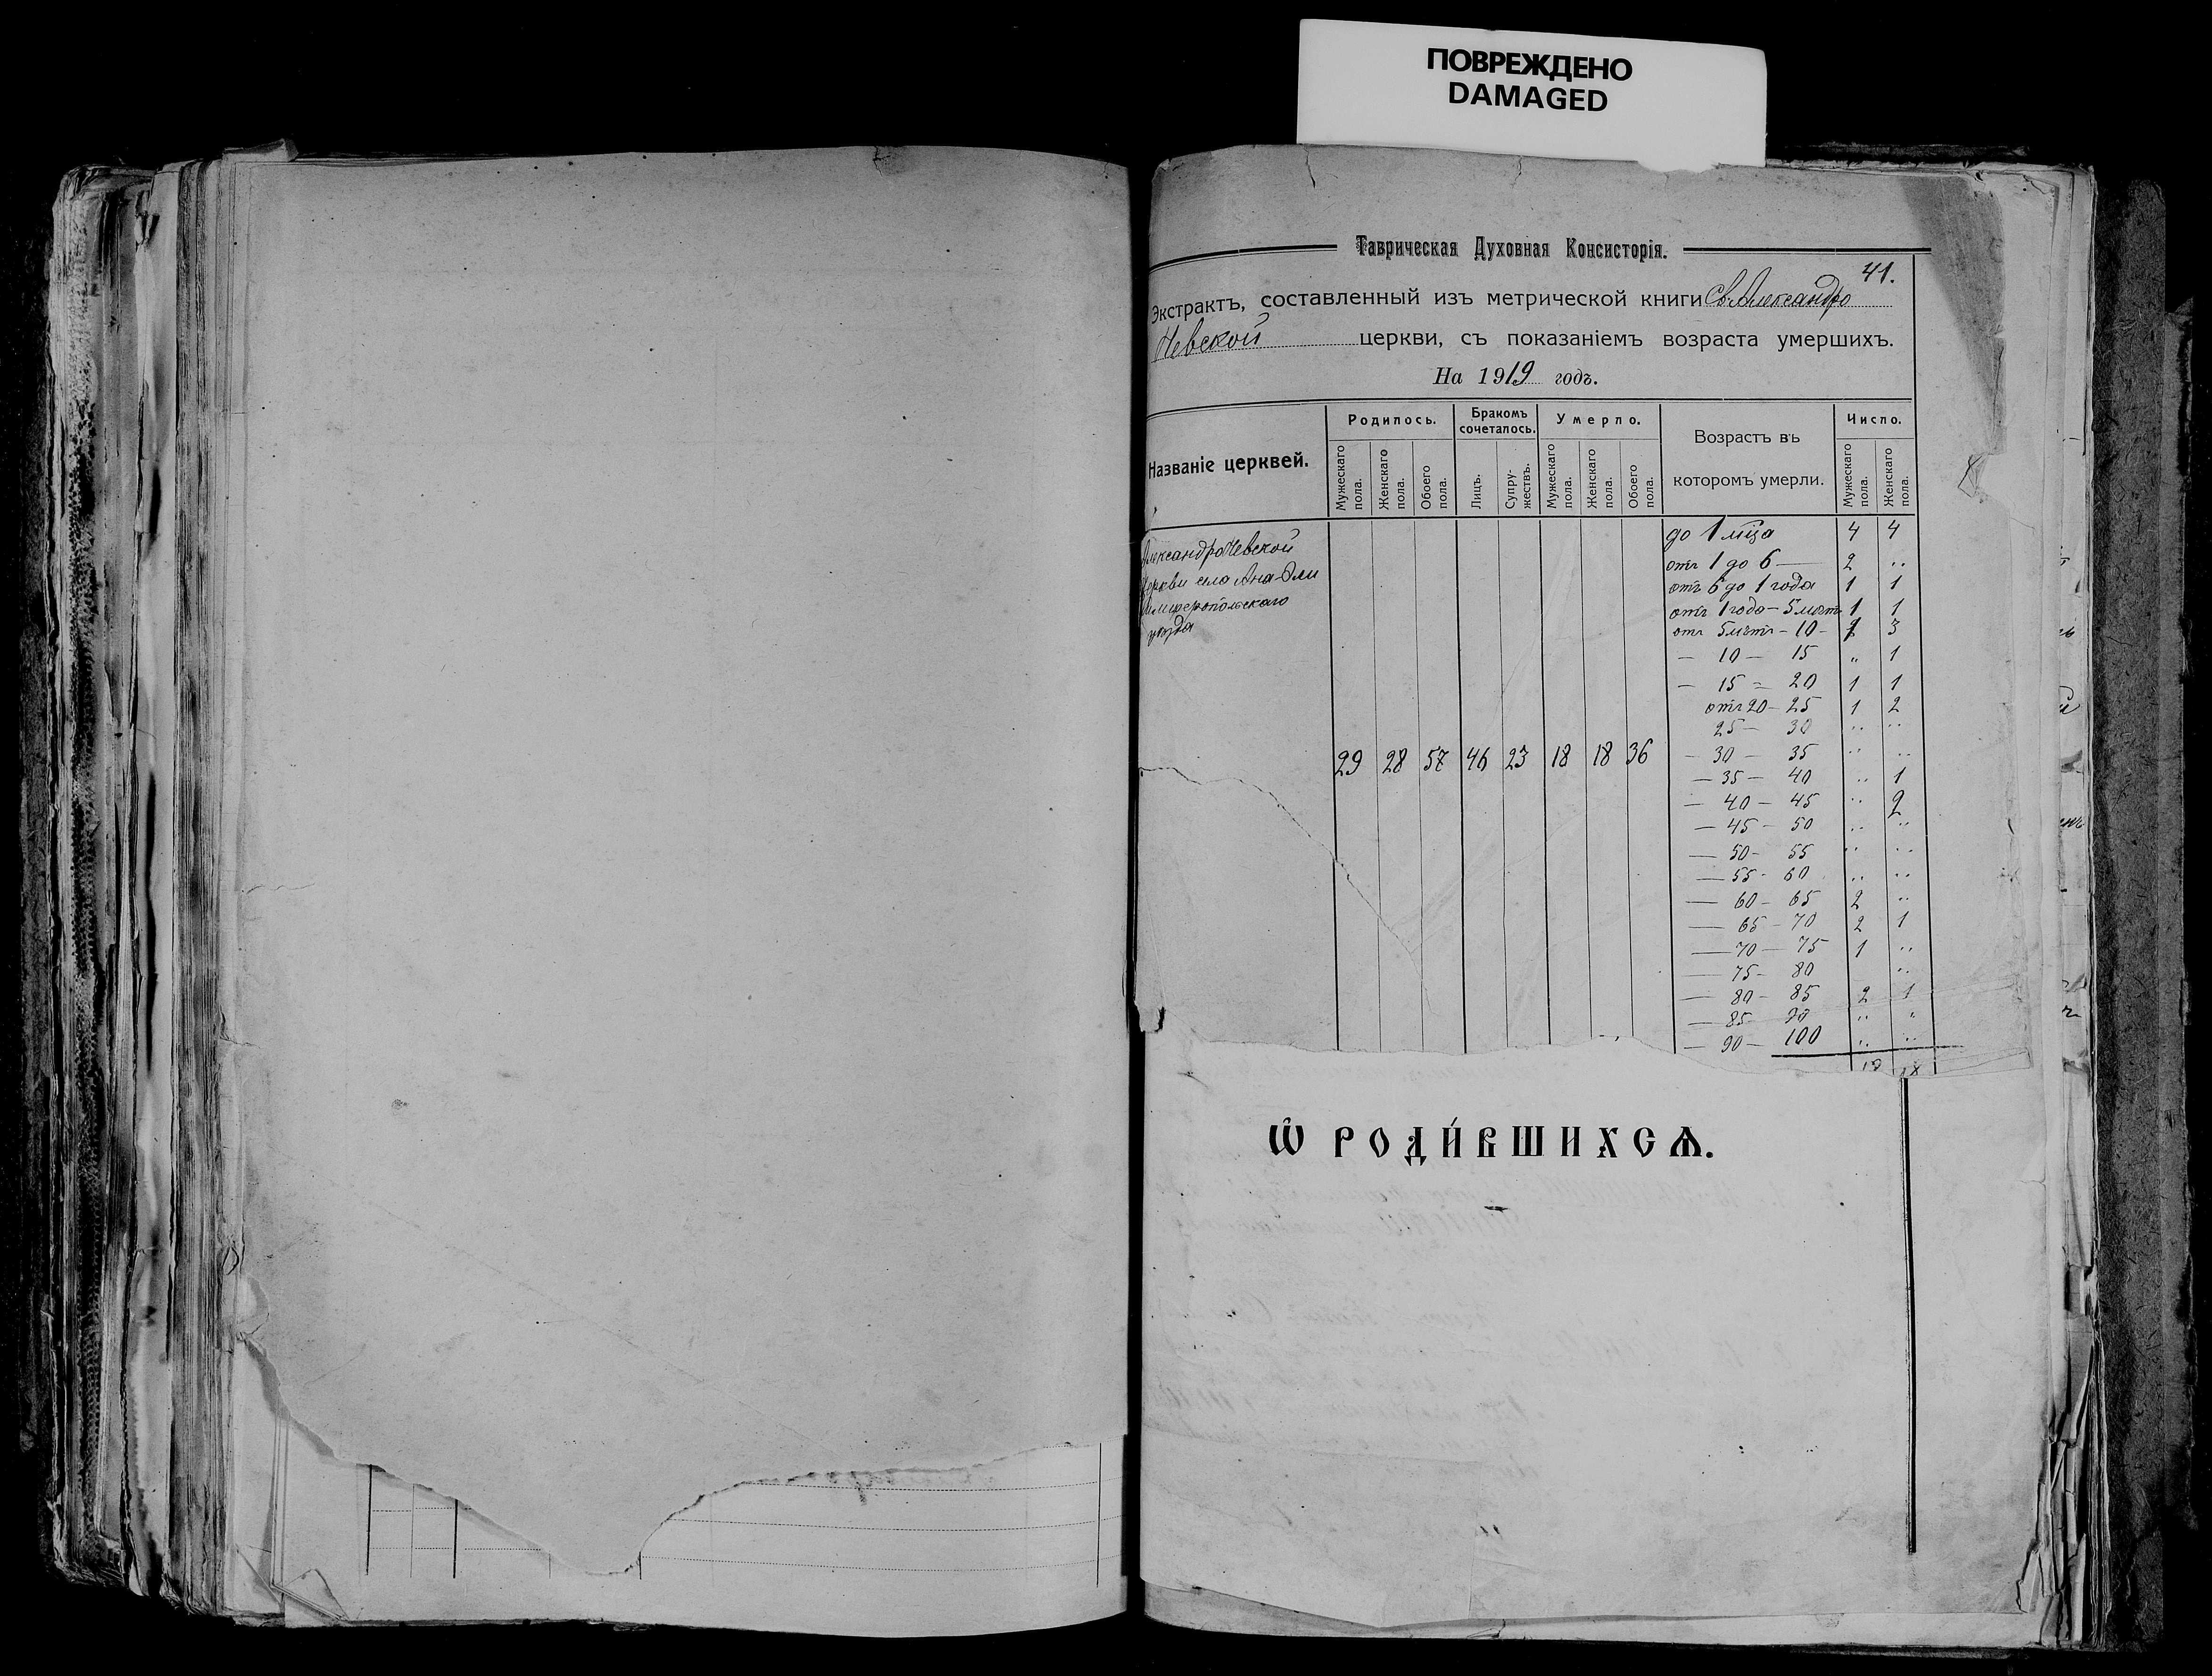 ПОВРЕЖДЕНО
DAMAGED
Таврическая Духовная Консисторія.
41.
Экстрактъ, составленный изъ метрической книги Св. Александро
Невской церкви, съ показаніемъ возраста умершихъ.
На 1919 годъ.
Названіе церквей.
Родилось.
Бракомъ сочеталось.
Умерло.
Возрастъ въ которомъ умерли.
Число.
Мужескаго пола.
Женскаго пола.
Обоего пола.
Лицъ.
Супружествъ.
Мужескаго пола.
Женскаго пола.
Обоего пола.
Мужескаго пола.
Женскаго пола.
Александро Невской
церкви села Ана-Эли
Симферопольскаго
уѣзда
29 28 57 46 23 18 18 36
до 1 мѣца 4 4
отъ 1 до 6 — 2 ..
отъ 6 до 1 года 1 1
отъ 1 года — 5 лѣтъ 1 1
отъ 5 лѣтъ — 10 — 3
— 10 — 15 " 1
— 15 — 20 1 1
отъ 20 — 25 1 2
25 — 30 .. ..
— 30 — 35 .. ..
— 35 — 40 .. 1
— 40 — 45 .. 2
— 45 — 50 .. ..
— 50 — 55 .. ..
— 55 — 60 .. ..
— 60 — 65 2 ..
— 65 — 70 2 1
— 70 — 75 1 ..
— 75 — 80 ..
— 80 — 85 2 1
— 85 90 .. "
— 90 — 100 .. ..
18 18
Ѿ РОДИ́ВШИХСѦ.